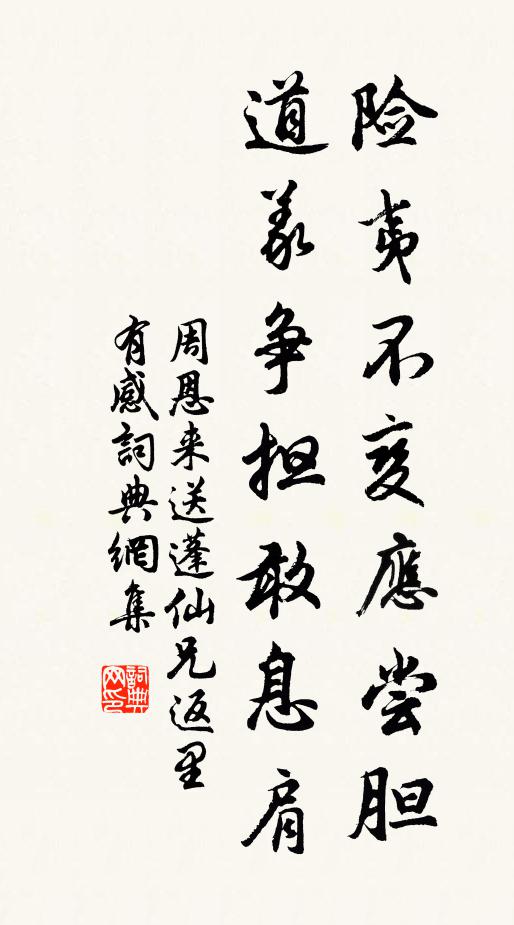 险夷不变應尝胆
道义争担敢息肩
周恩来送蓬仙兄返里
有感詞典網集
詞典網印